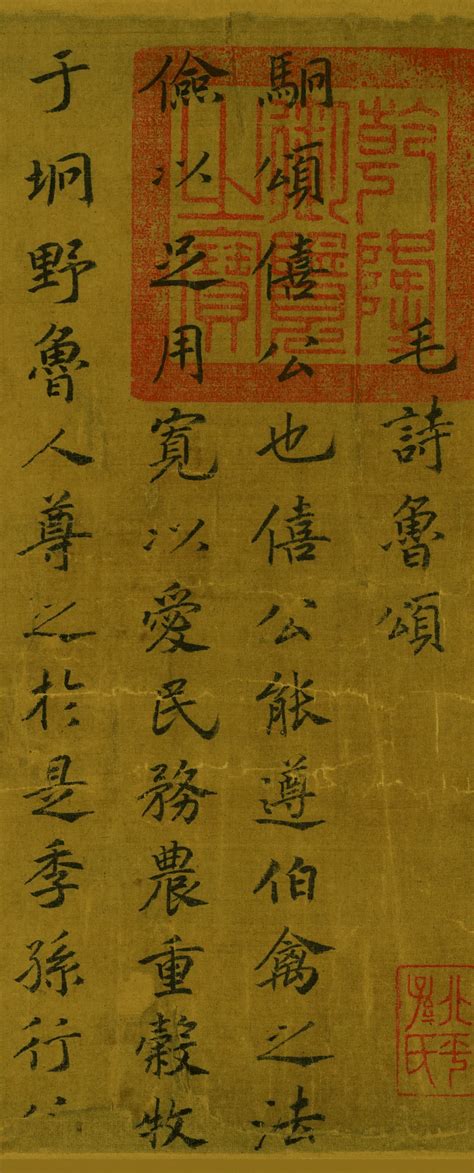 乾隆御覽之寶
毛詩魯頌
駉頌僖公也僖公能遵伯禽之法
儉以足用寬以愛民務農重穀牧
于坰野魯人尊之於是季孫行
北平孫氏